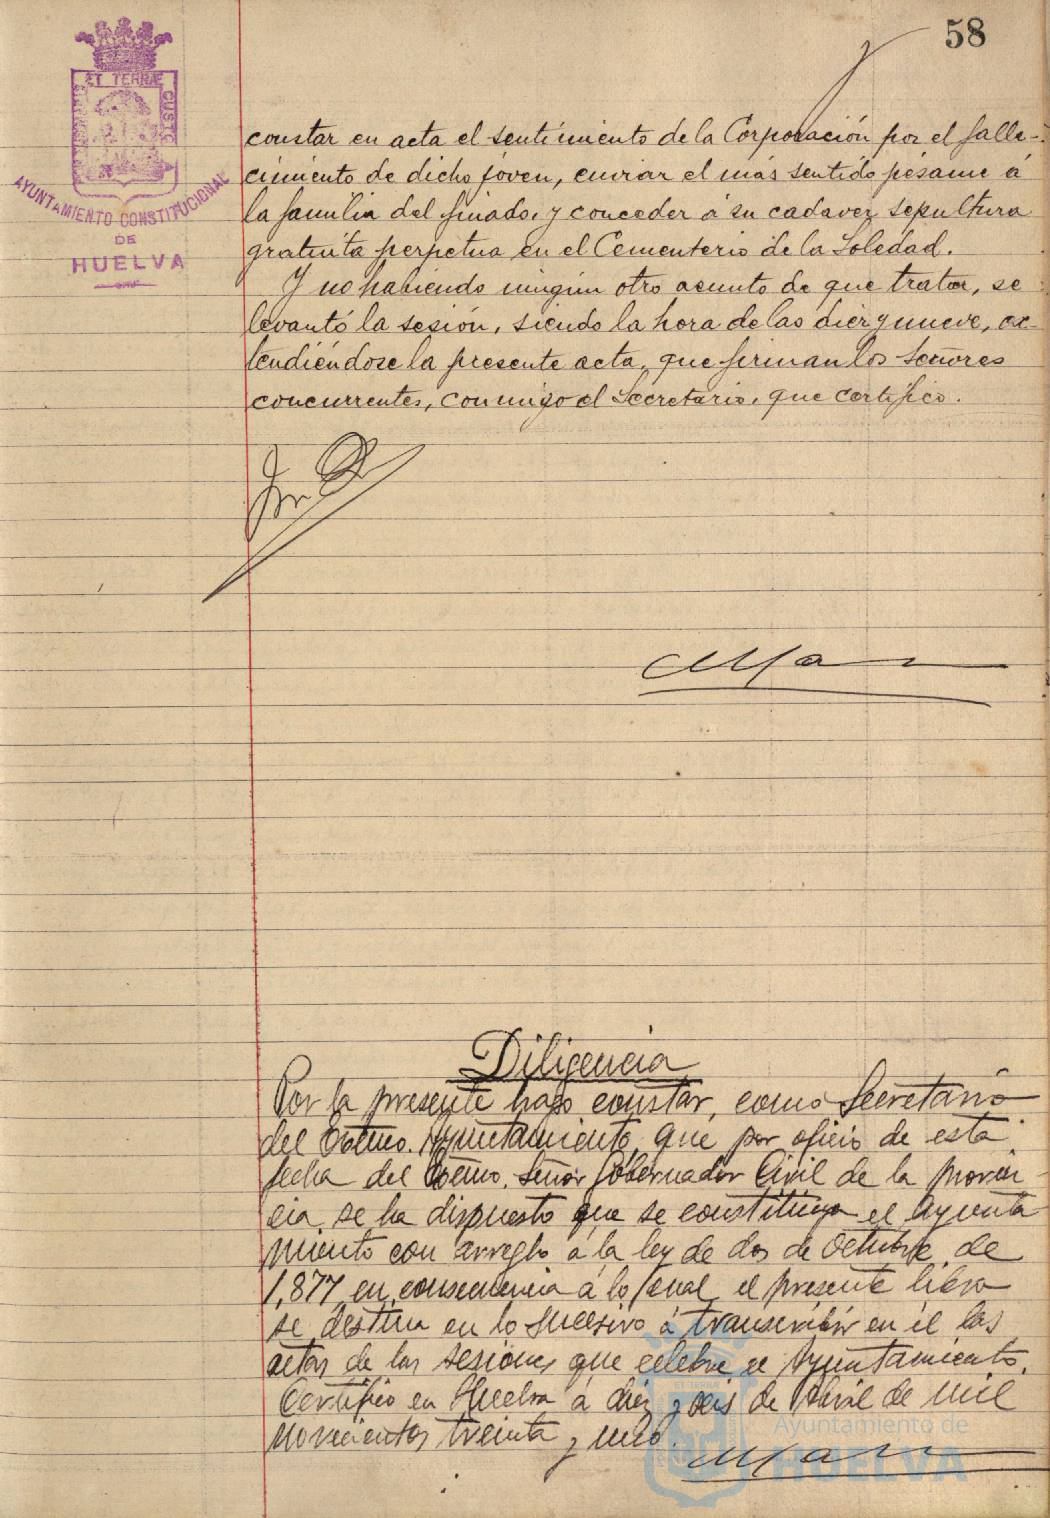 58
ET TERRÆ CUSTO
AYUNTAMIENTO CONSTITUCIONAL
DE
HUELVA
constar en acta el sentimiento de la Corporación por el falle-
cimiento de dicho jóven, enviar el más sentido pésame á
la familia del finado, y conceder á su cadaver sepultura
gratuita perpetua en el Cementerio de la Soledad.
Y no habiendo ningun otro asunto de que tratar, se
levantó la sesión, siendo la hora de las diez y nueve, ex-
tendiéndose la presente acta, que firman los Señores
concurrentes, conmigo el Secretario, que certifico.
Diligencia
Por la presente hago constar, como Secretario
del Excmo. Ayuntamiento, que por oficio de esta
fecha del Excmo. Señor Gobernador Civil de la provin-
cia, se ha dispuesto que se constituya el Ayunta
miento con arreglo á la ley de dos de Octubre de
1,877, en consecuencia á lo cual, el presente libro
se destina en lo sucesivo á transcribir en él las
actas de las sesiones que celebre el Ayuntamiento.
Certifico en Huelva á diez y seis de Abril de mil
novecientos treinta y uno.
Ayuntamiento de
HUELVA